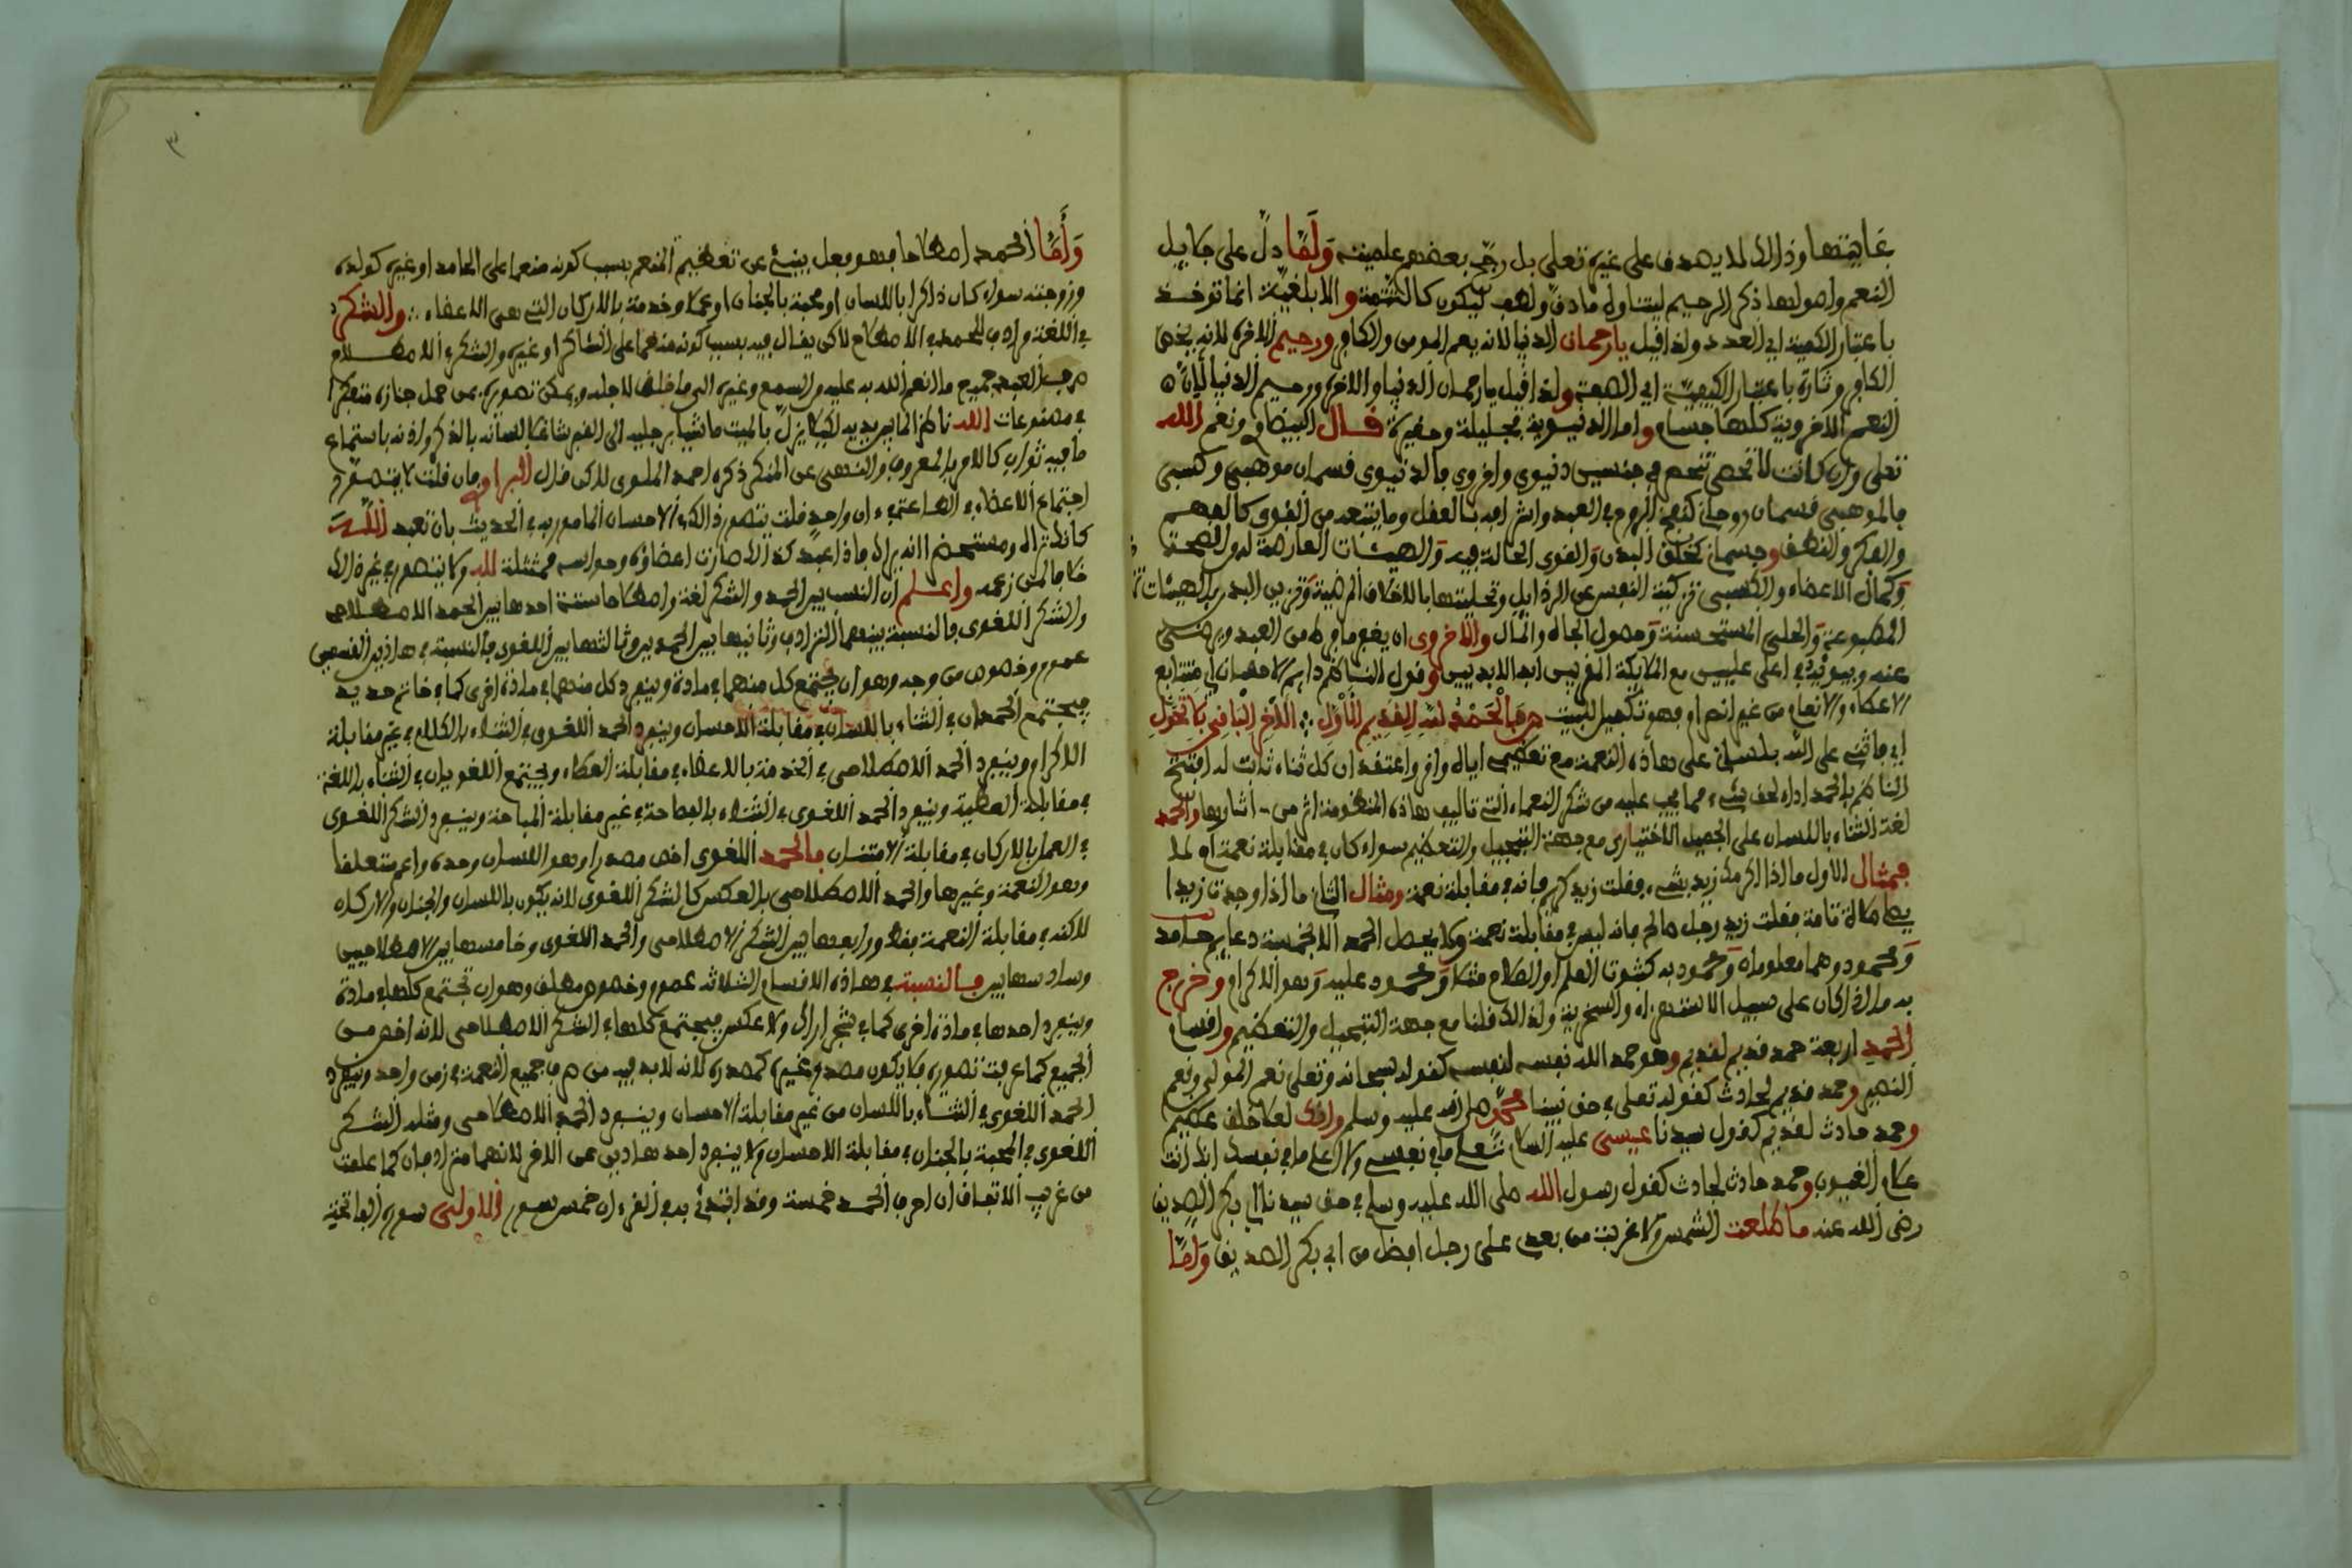 غايتها وذالك لا يصدق على غيره تعلى بل رجح بعضهم علميته وَلَمَّا دلّ على جلايل
النعم واصولها ذكر الرحيم ليتناول ما دق ولطف ليكون كالتتمة والابلغية انما توخذ
باعتبار الكمية اي العدد ولذا قيل يا رحمان الدنيا لانه يعم المومن والكافر ورحيم الاخرة لانه يخص
الكافر وتارة باعتبار الكيفية اي الصفة ولذا قيل يا رحمان الدنيا والاخرة ورحيم الدنيا لان
النعم الاخروية كلها جسام واما الدنيوية فجليلة وحقيرة قال البيضاوي ونعم الله
تعلى وان كانت لا تحصى تنحصر في جنسين دنيوي واخروي فالدنيوي قسمان موهبي وكسبي
فالموهبي قسمان روحاني كنفخ الروح في العبد واشراقه بالعقل وما يتبعه من القوى كالفهم
والفكر والنطق وجسماني كخلق البدن والقوى الحالة فيه والهيئات العارضة له من الصحة
وكمال الاعضاء والكسبي تزكية النفس عن الرذايل وتحليتها بالاخلاق المرضية وتزيين البدن بالهيئات
المطبوعة والحلي المستحسنة وحصول الجاه والمال والاخروي ان يغفر ما فرط من العبد ويرضى
عنه ويبوئه في اعلى عليين مع الملايكة المقربين ابد الابديين وقول الناظم دايم الاحسان اي متتابع
الاعطاء والانعام من غير انصرام وهو تكميل للبيت ص فَالْحَمْدُ لله الْقَدِيمِ الْأَوَّلِ ∴ الْآخِرِ الْبَاقِي بِلَا تَحَوُّلِ
اي فاثني على الله بلساني على هاذه النعمة مع تعظيمي اياه واقر واعتقد ان كل ثناء ثابت له افتتح
الناظم بالحمد اداء لحق شيء مما يجب عليه من شكر النعماء التي تاليف هاذه المنظومة اثر من - اثارها والحمد
لغة الثناء باللسان على الجميل الاختياري مع جهة التبجيل والتعظيم سواء كان في مقابلة نعمة ام لا
فمثال الاول ما اذا اكرمك زيد بشيء فقلت زيد كريم فانه في مقابلة نعمة ومثال الثاني ما اذا وجدت زيدا
يصلي صلاة تامة فقلت زيد رجل صالح فانه ليس في مقابلة نعمة ولا يحصل الحمد الا بخمسة دعايم حامد
ومحمود وهما معلومان ومحمود به كثبوت العلم او الصلاح مثلا ومحمود عليه وهو الاكرام وخرج
به ما اذا كان على سبيل الاستهزاء والسخرية ولذالك قلنا مع جهة التبجيل والتعظيم واقسام
الحمد اربعة حمد قديم لقديم وهو حمد الله نفسه لنفسه كقوله سبحانه وتعلى نعم المولى ونعم
النصير وحمد قديم لحادث كقوله تعلى في حق نبينا محمد صلى الله عليه وسلم وانك لعلا خلق عظيم
وحمد حادث لقديم كقول سيدنا عيسى عليه السلام تعلم ما في نفسي ولا اعلم ما في نفسك انك انت
علام الغيوب وحمد حادث لحادث كقول رسول الله صلى الله عليه وسلم في حق سيدنا ابي بكر الصديق
رضي الله عنه ما طلعت الشمس ولا غربت من بعدي على رجل افضل من ابي بكر الصديق وَامَّا
٣
وَأَمَّا الحمد اصطلاحا فهو فعل ينبئ عن تعظيم المنعم بسبب كونه منعما على الحامد او غيره كولده
وزوجته سواء كان ذاكرا باللسان او محبة بالجنان او عملا وخدمة بالاركان التي هي الاعضاء ∴ والشكر
في اللغة مرادف للحمد في الاصطلاح لاكن يقال فيه بسبب كونه منعما على الشاكر او غيره والشكر في الاصطلاح
صرف العبد جميع ما انعم الله به عليه من السمع وغيره الى ما خلق لاجله ويمكن تصوره بمن حمل جنازة متفكرا
في مصنوعات الله ناظرا لما بين يديه ليلا يزل بالميت ماشيا برجليه الى القبر شاغلا لسانه بالذكر واذنه باستماع
ما فيه ثواب كالامر بالمعروف والنهي عن المنكر ذكره احمد الملوي لاكن قال البراوي فان قلت لا يتصور
اجتماع الاعضاء في الطاعة في ان واحد قلت يتصور ذالك في الاحسان المامور به في الحديث بان تعبد الله
كانك تراه ومستحضرا انه يراك فاذا عبد كذالك صارت اعضاؤه وحواسه ممتثلة لله ولا يتصور في غير ذالك
خلافا لمن زعمه واعلم ان النسب بين الحمد والشكر لغة واصطلاحا ستة احدها بين الحمد الاصطلاحي
والشكر اللغوي فالنسبة بينهما الترادف وثانيها بين الحمدين وثالثها بين اللغوي فالنسبة في هاذين القسمين
عموم وخصوص من وجه وهو ان يجتمع كل منهما في مادة وينفرد كل منهما في مادة اخرى كما في خاتم حديد
فيجتمع الحمدان في الثناء باللسان في مقابلة الاحسان وينفرد الحمد اللغوي في الثناء بالكلام في غير مقابلة
الاكرام وينفرد الحمد الاصطلاحي في الخدمة بالاعضاء في مقابلة العطاء ويجتمع اللغويان في الثناء باللغة
في مقابلة العطية وينفرد الحمد اللغوي في الثناء بالفصاحة في غير مقابلة المباحة وينفرد الشكر اللغوي
في العمل بالاركان في مقابلة الامتنان فالحمد اللغوي اخص مصدرا وهو اللسان وحده واعم متعلقا
وهو النعمة وغيرها والحمد الاصطلاحي بالعكس كالشكر اللغوي لانه يكون باللسان والجنان والاركان
لاكنه في مقابلة النعمة فقط ورابعها بين الشكر الاصطلاحي والحمد اللغوي وخامسها بين الاصطلاحيين
وسادسها بين فالنسبة في هاذه الاقسام الثلاثة عموم وخصوص مطلق وهو ان تجتمع كلها في مادة
وينفرد احدها في مادة اخرى كما في شجر اراك ولا عكس فيجتمع كلها في الشكر الاصطلاحي لانه اخص من
الجميع كما عرفت تصوره فلا يكون مصدر غيره كمصدره لانه لا بد فيه من صرف جميع النعمة في زمن واحد وينفرد
الحمد اللغوي في الثناء باللسان من غير مقابلة الاحسان وينفرد الحمد الاصطلاحي ومثله الشكر
اللغوي في المحبة بالجنان في مقابلة الاحسان ولا ينفرد احد هاذين عن الاخر لانهما مترادفان كما علمت
من غريب الاتفاق ان احرف الحمد خمسة وقد ابتدئ به في القرءان خمس سور فالاولى سورة الفاتحة